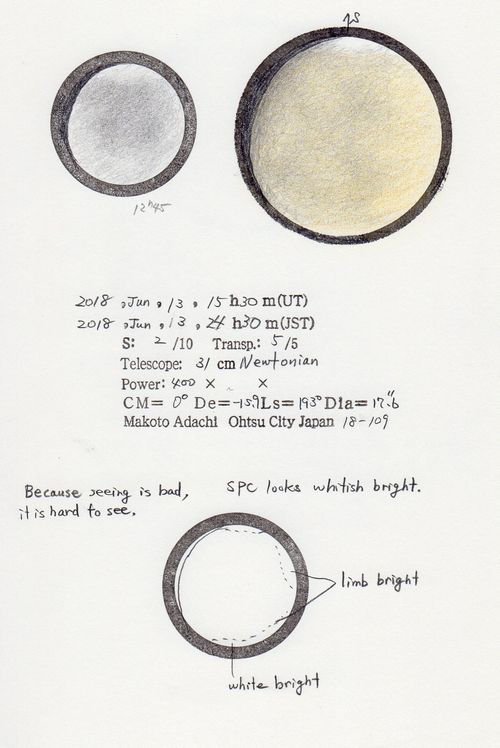 ↑S
12h45
2018, Jun, 13, 15 h30 m(UT)
2018, Jun, 13, 24 h30 m(JST)
S: 2 /10 Transp.: 5 /5
Telescope: 31 cm Newtonian
Power: 400 × ×
CM= 0° De=-15.9 Ls= 193° Dia= 17."6
Makoto Adachi Ohtsu City Japan 18-109
Because seeing is bad,
it is hard to see.
SPC looks whitish bright.
limb bright
white bright